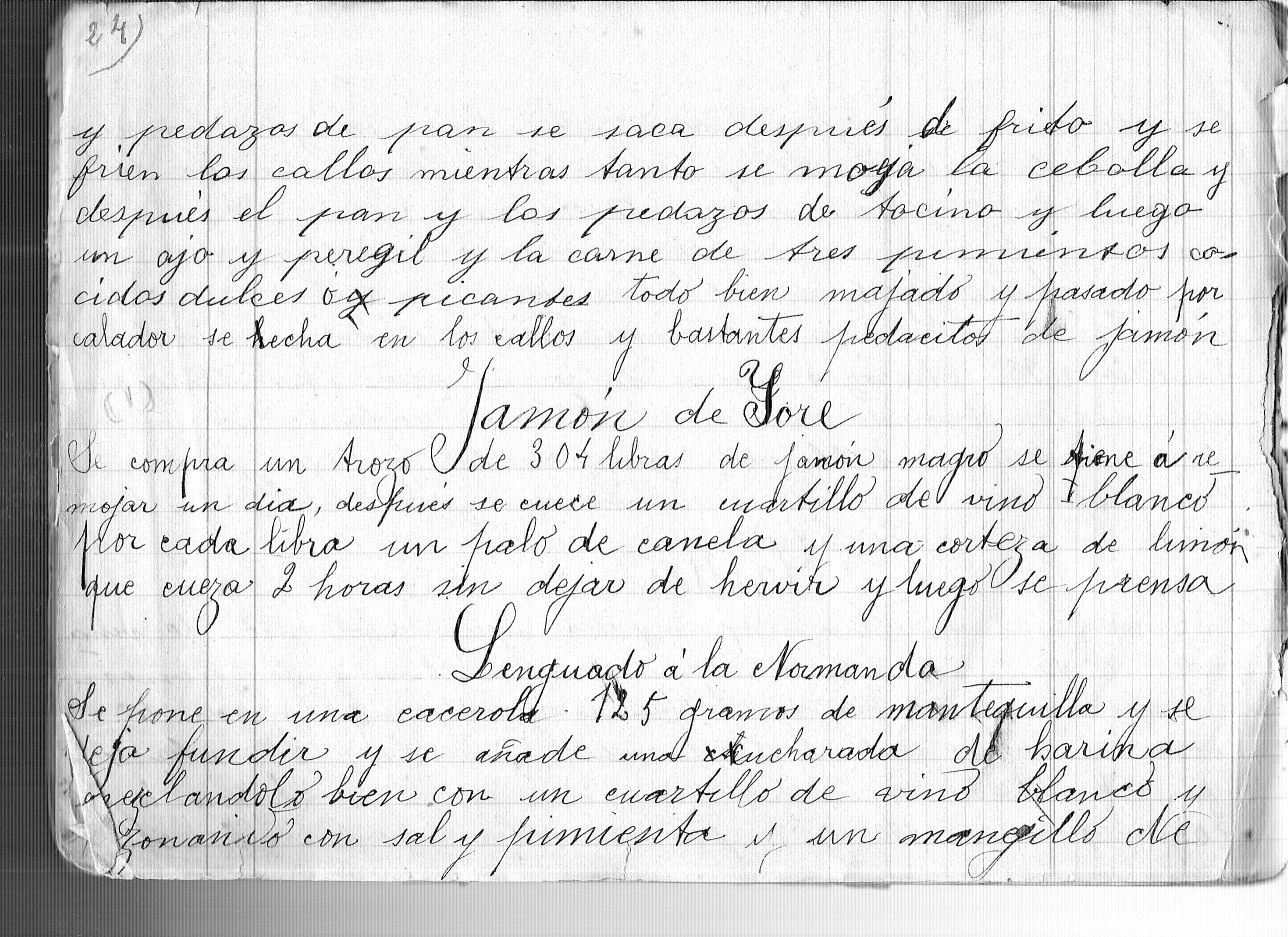 24)
y pedazos de pan se saca después de frito y se
frien los callos mientras tanto se moja la cebolla y
después el pan y los pedazos de tocino y luego
un ajo y peregil y la carne de tres pimientos co-
cidos dulces ó picantes todo bien majado y pasado por
calador se hecha en los callos y bastantes pedacitos de jamón
Jamón de Yore
Se compra un trozo de 3 o 4 libras de jamón magro se tiene á re
mojar un dia, después se cuece un cuartillo de vino blanco
por cada libra un palo de canela y una corteza de limón
que cueza 2 horas sin dejar de hervir y luego se prensa
Lenguado á la Normanda
Se pone en una cacerola 125 gramos de mantequilla y se
deja fundir y se añade una cucharada de harina
mezclandolo bien con un cuartillo de vino blanco y
zonando con sal y pimienta y un manojillo de